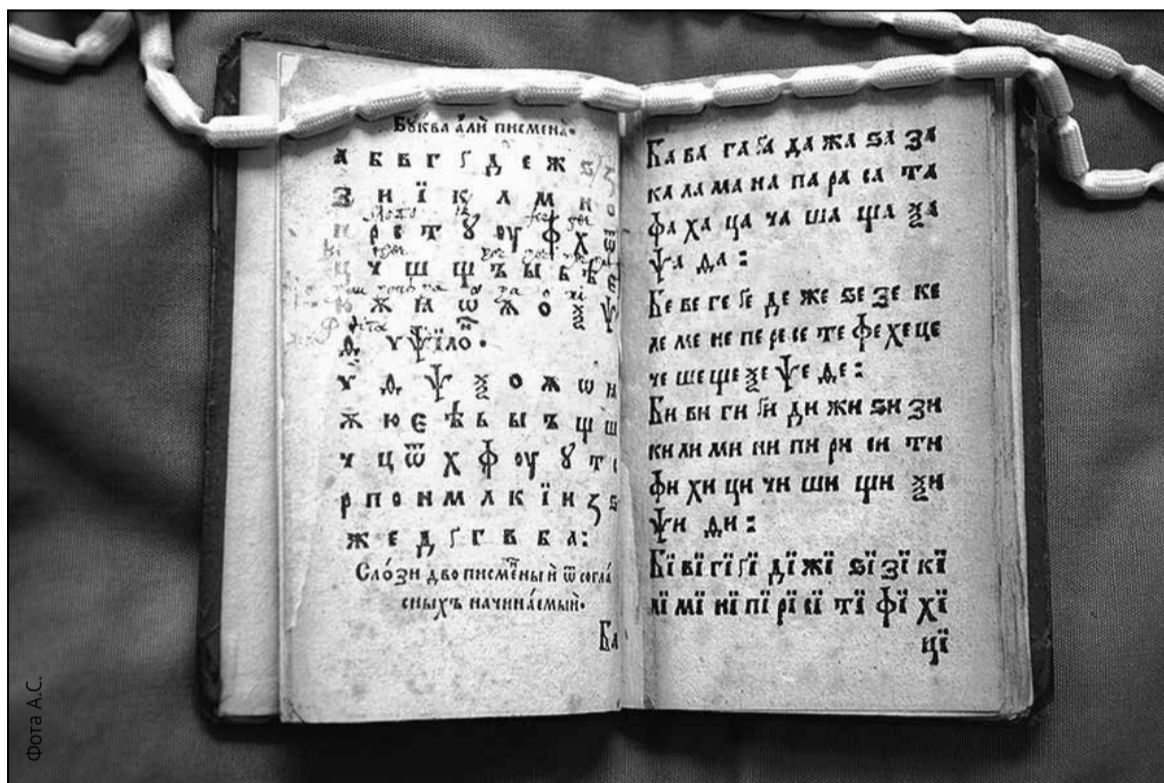 Бꙋква а́ли писмена̀.
а б в г ґ д е ж ѕ
з и ї к л м н о
п р с т ꙋ оу ф х
ц ч ш щ ъ ы ь ѣ є
ю ѫ ꙗ ѡ ѧ о ѯ ѱ
ѳ ѵ
ѵ ѳ ѱ ѯ о ѧ ѡ
ѫ ю є ѣ ь ы ъ щ ш
ч ц ѿ х ф оу ꙋ т с
р п о н м л к ї и з ѕ
ж е д ґ г в б а:
Сло́зи двописме́ныи ѿ согла́
сныхъ начина́емыи.
Ба
Ба ва га ґа да жа ѕа за
ка ла ма на па ра са та
фа ха ца ча ша ща ѯа
ѱа ѳа :
Бе ве ге ґе де же ѕе зе ке
ле ме не пе ре се те фе хе це
че ше ще ѯе ѱе ѳе :
Би ви ги ґи ди жи ѕи зи
ки ли ми ни пи ри си ти
фи хи ци чи ши щи ѯи
ѱи ѳи :
Бї вї гї ґї дї жї ѕї зї кї
лї мї нї пї рї сї тї фї хї
цї
Фота А.С.